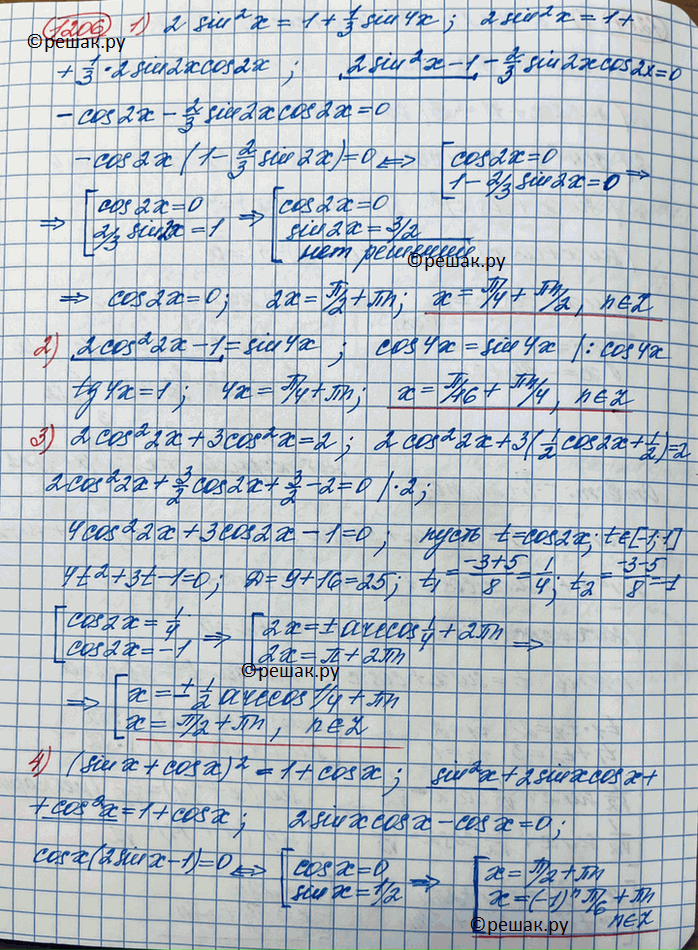 1206 1) 2 sin²x = 1 + 1/3 sin4x ; 2sin²x = 1 +
©reшак.ру
+ 1/3 · 2sin2xcos2x ; 2sin²x - 1 - 2/3 sin2xcos2x = 0
- cos2x - 2/3 sin2xcos2x = 0
- cos2x (1 - 2/3 sin2x) = 0 <=> [ cos2x = 0
1 - 2/3 sin2x = 0 =>
=> [ cos2x = 0
2/3 sin2x = 1 => [ cos2x = 0
sin2x = 3/2
нет решений
©reшак.ру
=> cos2x = 0 ; 2x = π/2 + πn ; x = π/4 + πn/2 , n∈Z
2) 2cos²2x - 1 = sin4x ; cos4x = sin4x | : cos4x
tg4x = 1 ; 4x = π/4 + πn ; x = π/16 + πn/4 , n∈Z
3) 2cos²2x + 3cos²x = 2 ; 2cos²2x + 3(1/2 cos2x + 1/2) = 2
2cos²2x + 3/2 cos2x + 3/2 - 2 = 0 | · 2 ;
4cos²2x + 3cos2x - 1 = 0 ; пусть t = cos2x ; t∈[-1;1]
4t² + 3t - 1 = 0 ; D = 9 + 16 = 25 ; t₁ = (-3+5)/8 = 1/4 ; t₂ = (-3-5)/8 = -1
[ cos2x = 1/4
cos2x = -1 => [ 2x = ± arccos 1/4 + 2πn
2x = π + 2πn =>
©reшак.ру
=> [ x = ± 1/2 arccos 1/4 + πn
x = π/2 + πn , n∈Z
4) (sinx + cosx)² = 1 + cosx ; sin²x + 2sinxcosx +
+ cos²x = 1 + cosx ; 2sinxcosx - cosx = 0 ;
cosx(2sinx - 1) = 0 <=> [ cosx = 0
sinx = 1/2 => [ x = π/2 + πn
x = (-1)ⁿ π/6 + πn
n∈Z
©reшак.ру